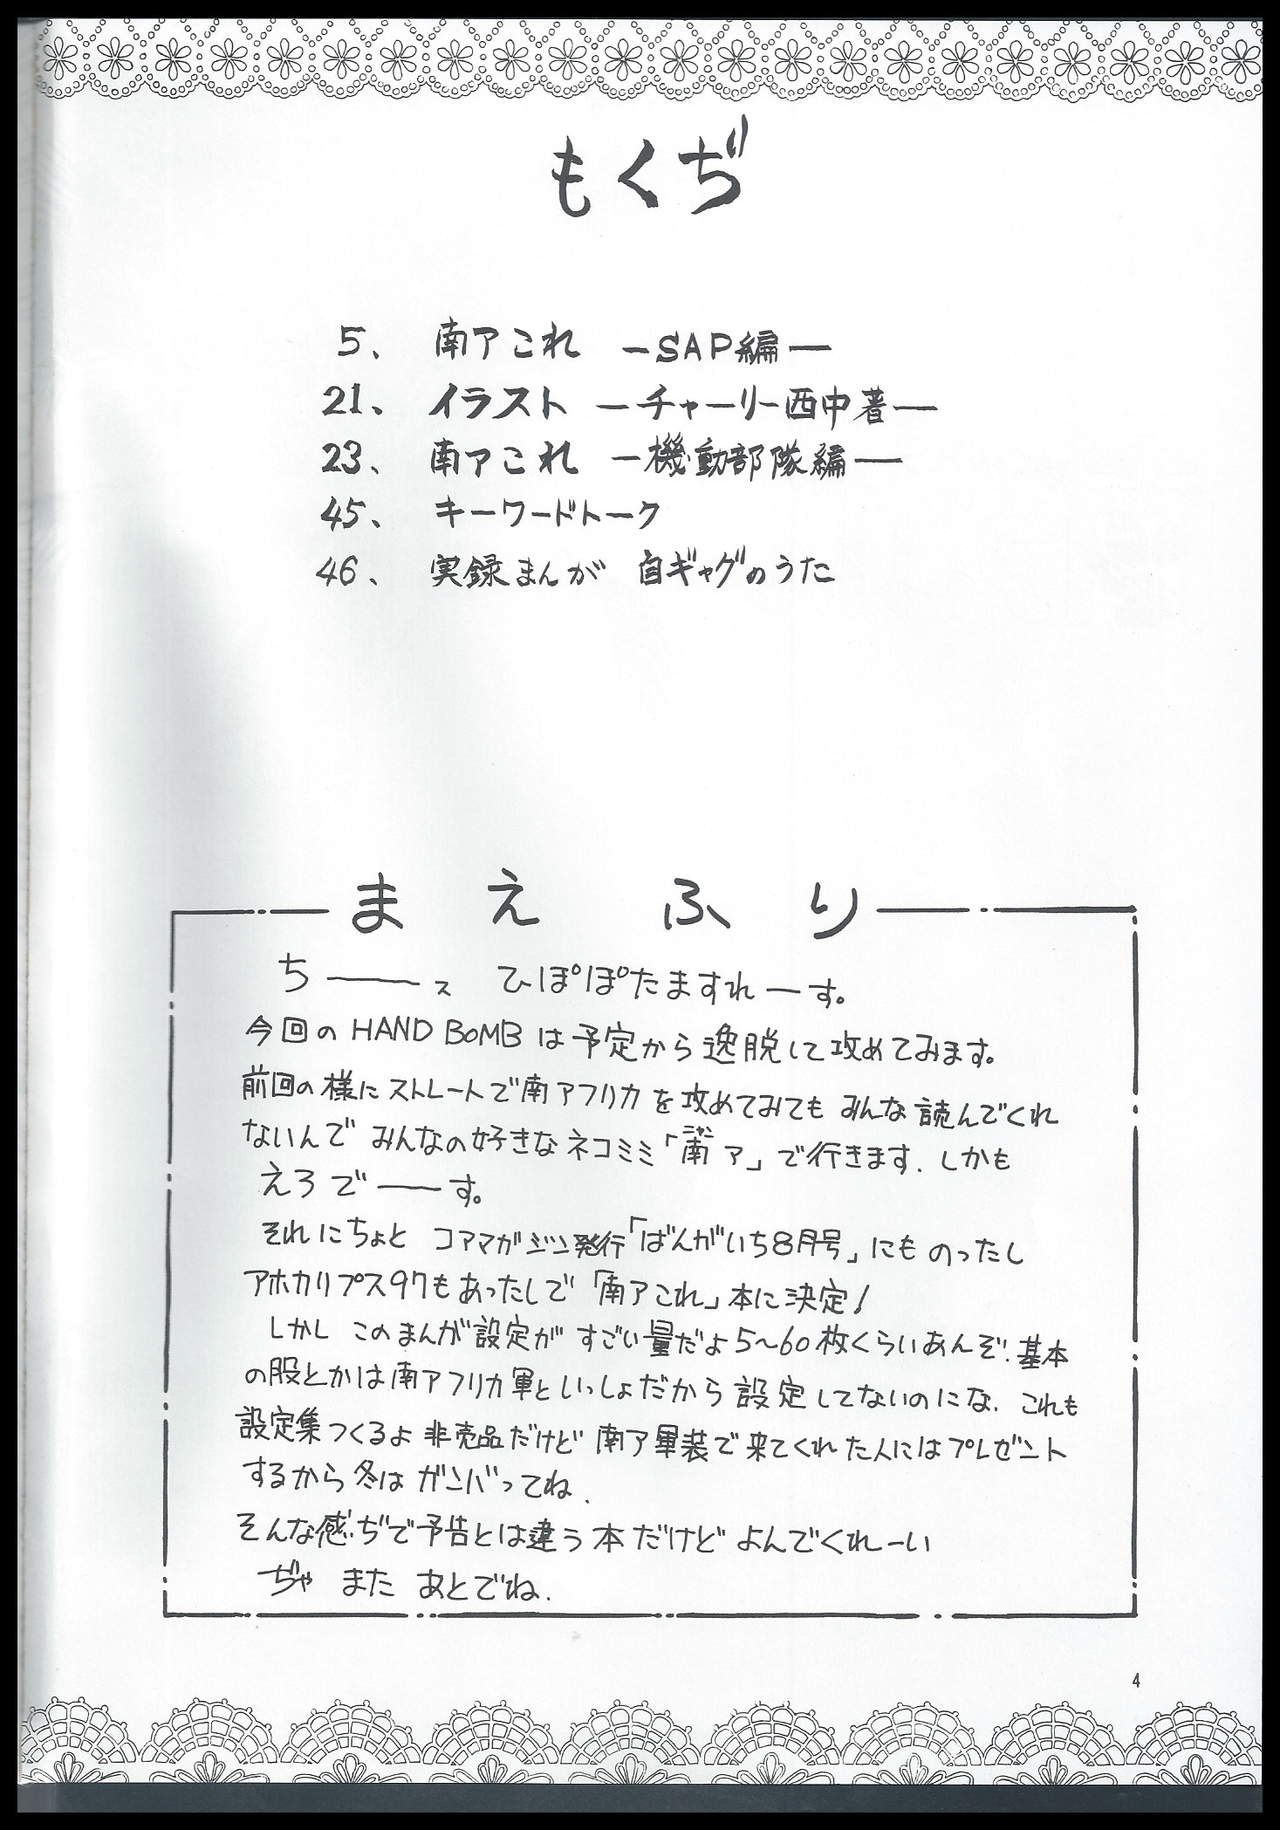 もくぢ
5、 南アこれ ーSAP編ー
21、 イラスト ーチャーリー西中著ー
23、 南アこれ ー機動部隊編ー
45、 キーワードトーク
46、 実録まんが 自ギャグのうた
まえふり
ちーーース ひぽぽたますれーす。
今回のHAND BOMBは予定から逸脱して攻めてみます。
前回の様にストレートで南アフリカを攻めてみてもみんな読んでくれ
ないんで みんなの好きなネコミミ「南ア」で行きます. しかも
えろでーーす。
それにちょと コアマガジン発行「ばんがいち8月号」にも のったし
アホカリプス97もあったしで「南アこれ」本に決定!
しかし このまんが設定が すごい量だよ 5〜60枚くらいあんぞ. 基本
の服とかは南アフリカ軍といっしょだから 設定してないのにな. これも
設定集つくるよ 非売品だけど 南ア軍装で来てくれた人にはプレゼント
するから冬は ガンバってね.
そんな感ぢで予告とは違う本だけど よんでくれーい
ぢゃ また あとでね.
4